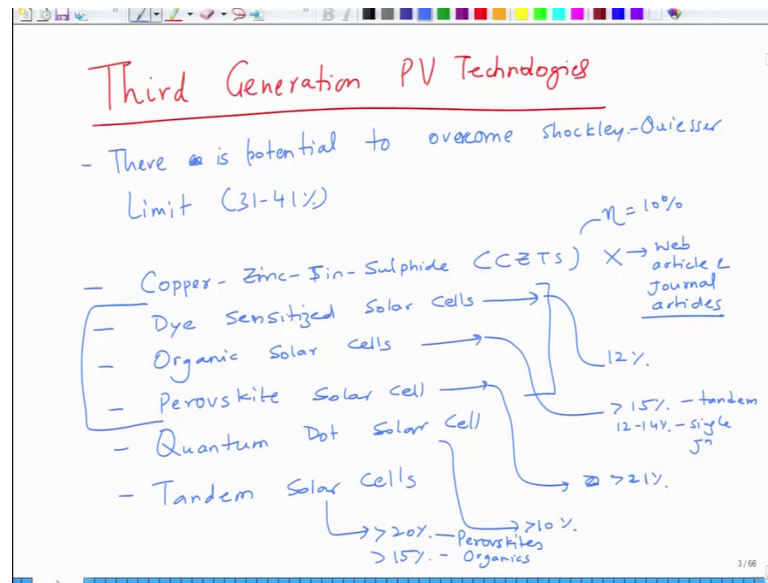 Third Generation PV Technologies
- There is potential to overcome Shockley-Quiesser
Limit (31-41%)
η = 10%
- Copper-Zinc-Tin-Sulphide (CZTS) X → Web
article &
Journal
articles
- Dye Sensitized Solar Cells
12%.
- Organic Solar Cells
>15%. - tandem
12-14%. - single
Jn
- Perovskite Solar Cell
>21%.
- Quantum Dot Solar Cell
>10%.
- Tandem Solar Cells
>20%. - Perovskites
>15%. - Organics
3 / 66